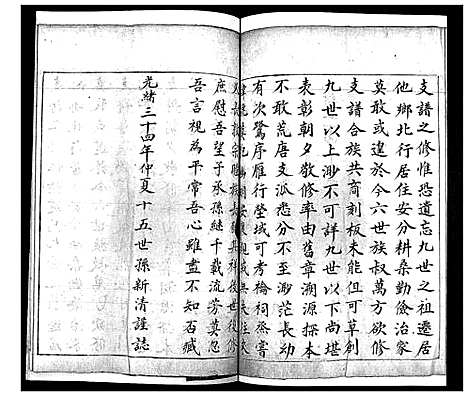 支譜之修惟恐遺忘九世之祖遷居
他鄉北行居住安分耕桑勤儉治家
莫敢或違於今六世族叔萬方欲修
支譜合族共商刻板未能但可草創
九世以上渺不可詳九世以下尚堪
表彰朝夕敬修率由舊章溯源探本
不敢荒唐支派悉分不至渺茫長幼
有次鷺序雁行塋域可考綸祠烝嘗
庶慰吾望子承孫繼千載流芳莫忽
吾言視為平常吾心雖盡不知否臧
光緒三十四年仲夏十五世孫新清謹誌